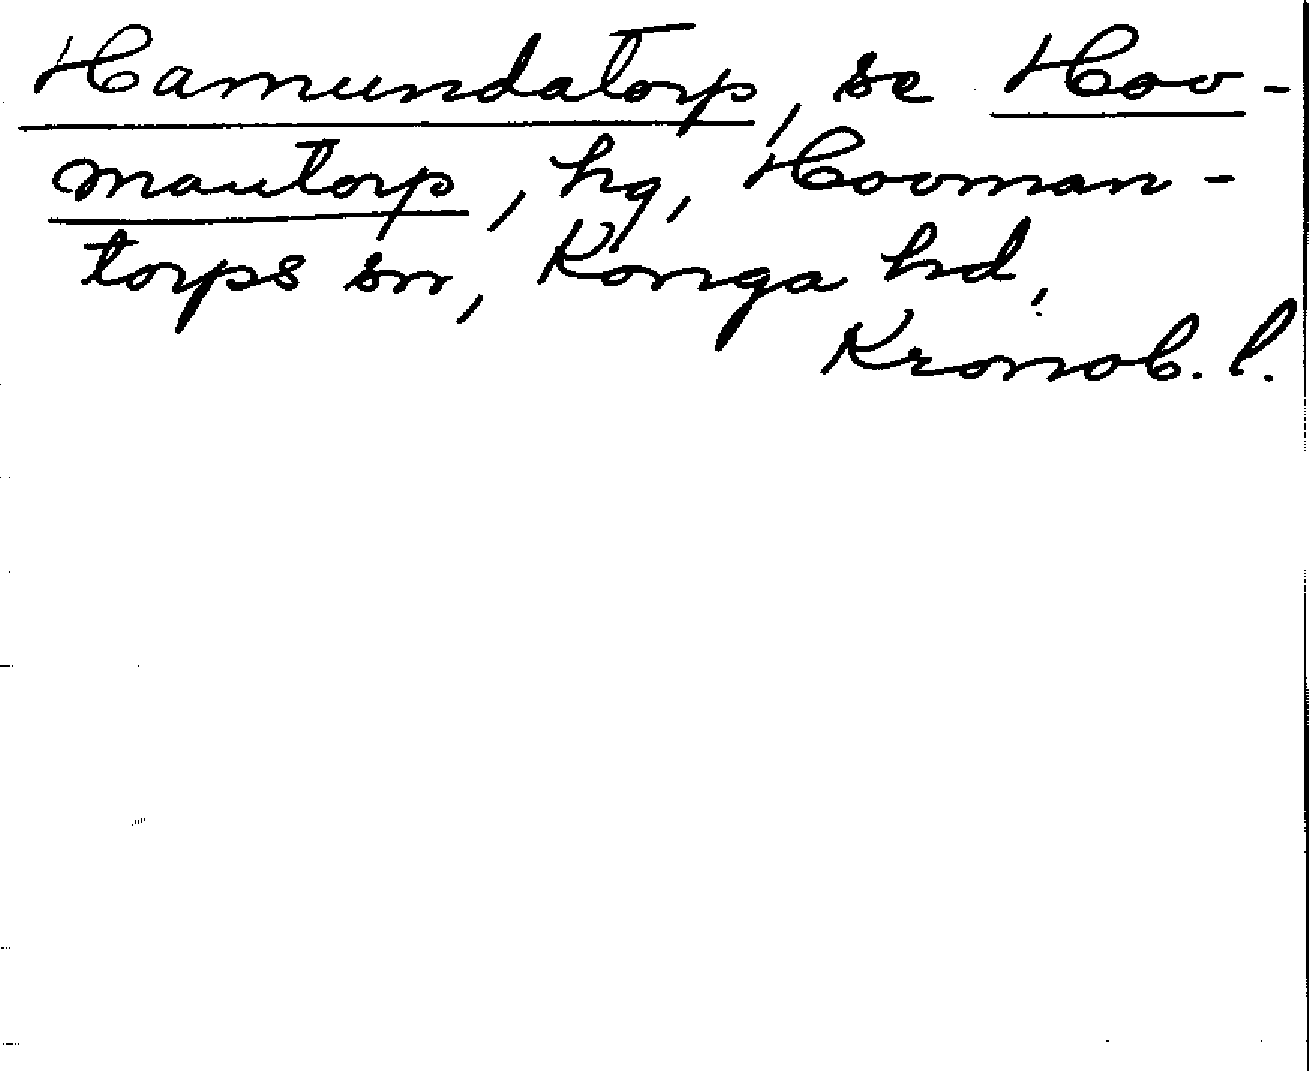 Hamundatorp, se Hoo-
mantorp, hg, Hooman-
torps sn, Konga hd,
Kronob. l.